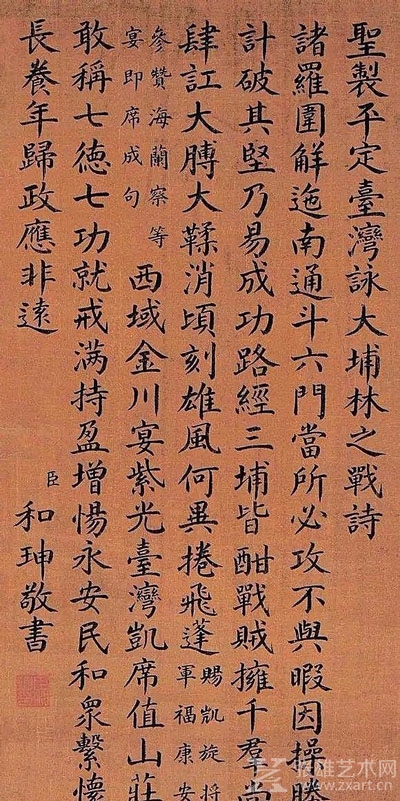 聖製平定臺灣詠大埔林之戰詩
諸羅圍解迤南通斗六門當所必攻不與暇因操勝
計破其堅乃易成功路經三埔皆酣戰賊擁千羣尚
肆訌大膊大鞣消頃刻雄風何異捲飛蓬
賜凱旋將
軍福康安
參贊海蘭察等
宴即席成句
西域金川宴紫光臺灣凱席值山莊
敢稱七德七功就戒滿持盈增惕永安民和衆繫懷
長養年歸政應非遠
臣和珅敬書
雄艺术网
www.zxart.cn